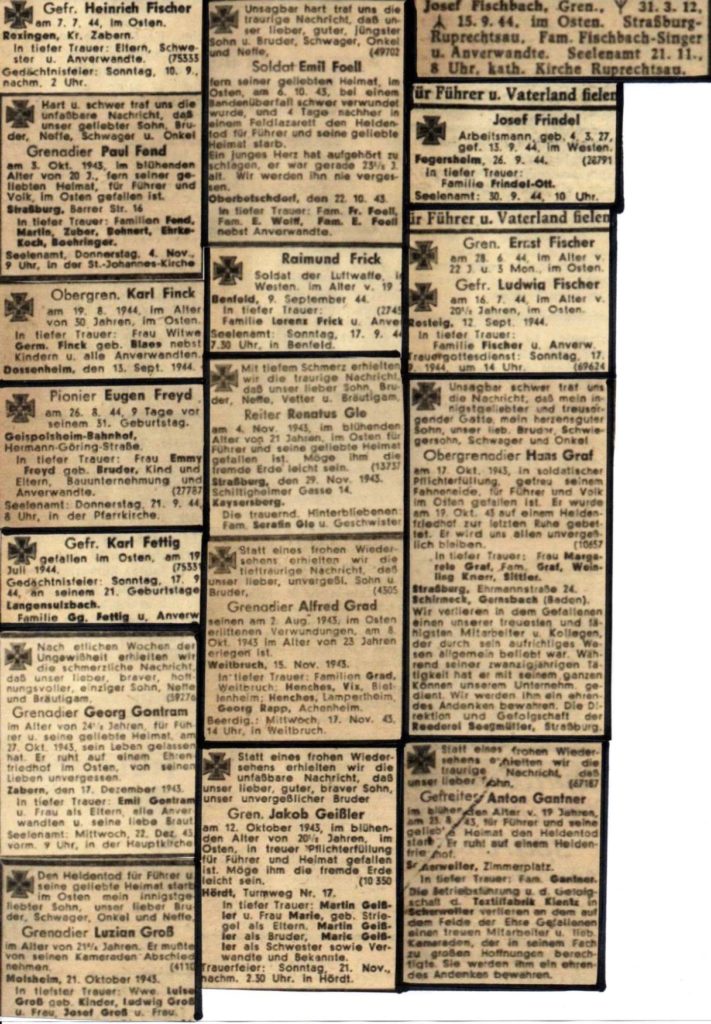 Gefr. Heinrich Fischer
gef. 7. 7. 44, im Osten.
Rexingen, Kr. Zabern.
In tiefer Trauer: Eltern, Schwe-
ster u. Anverwandte. (75333
Gedächtnisfeier: Sonntag, 10. 9.,
nachm. 2 Uhr.
Hart u. schwer traf uns die
unfaßbare Nachricht, daß un-
ser geliebter Sohn, Bru-
der, Neffe, Schwager u. Onkel
Grenadier Paul Fend
am 3. Okt. 1943, im blühenden
Alter von 20 J., fern seiner ge-
liebten Heimat, für Führer und
Volk, im Osten gefallen ist.
Straßburg, Barrer Str. 16
In tiefer Trauer: Familien Fend,
Martin, Zuber, Behnert, Ehrke-
Koch, Boehringer.
Seelenamt, Donnerstag, 4. Nov.,
9 Uhr, in der St.-Johannes-Kirche
Obergren. Karl Finck
am 19. 8. 1944, im Alter
von 30 Jahren, im Osten.
In tiefer Trauer: Frau Witwe
Germ. Finck geb. Blaes nebst
Kindern u. alle Anverwandten.
Dossenheim, den 13. Sept. 1944.
Pionier Eugen Freyd
am 26. 8. 44, 9 Tage vor
seinem 31. Geburtstag.
Geispolsheim-Bahnhof,
Hermann-Göring-Straße.
In tiefer Trauer: Frau Emmy
Freyd geb. Bruder, Kind und
Eltern, Bauunternehmung und
Anverwandte. (27787
Seelenamt: Donnerstag, 21. 9. 44,
8 Uhr, in der Pfarrkirche.
Gefr. Karl Fettig
gefallen im Osten, am 19
Juli 1944. (7533
Gedächtnisfeier: Sonntag, 17. 9
44, an seinem 21. Geburtstage
Langensulzbach.
Familie Gg. Fettig u. Anverw
Nach etlichen Wochen der
Ungewißheit erhielten wir
die schmerzliche Nachricht,
daß unser lieber, braver, hoff-
nungsvoller, einziger Sohn, Neffe
und Bräutigam, (59276
Grenadier Georg Gontram
im Alter von 24½ Jahren, für Füh-
rer u. seine geliebte Heimat, am
27. Okt. 1943, sein Leben gelassen
hat. Er ruht auf einem Ehren-
friedhof im Osten, von seinen
Lieben unvergessen.
Zabern, den 17. Dezember 1943.
In tiefer Trauer: Emil Gontram
u. Frau als Eltern, alle Anver-
wandten u. seine liebe Braut.
Seelenamt: Mittwoch, 22. Dez. 43,
vorm. 9 Uhr, in der Hauptkirche
Den Heldentod für Führer u.
seine geliebte Heimat starb
im Osten mein innigst-
geliebter Sohn, unser lieber Bru-
der, Schwager, Onkel und Neffe,
Grenadier Luzian Groß
im Alter von 21½ Jahren. Er mußte
von seinen Kameraden Abschied
nehmen. (4110
Molsheim, 21. Oktober 1943.
In tiefster Trauer: Wwe. Luise
Groß geb. Kinder, Ludwig Groß
u. Frau, Josef Groß u. Frau.
Unsagbar hart traf uns die
traurige Nachricht, daß un-
ser lieber, guter, jüngster
Sohn u. Bruder, Schwager, Onkel
und Neffe, (49702
Soldat Emil Foell
fern seiner geliebten Heimat, im
Osten, am 6. 10. 43, bei einem
Bandenüberfall schwer verwundet
wurde, und 4 Tage nachher in
einem Feldlazarett den Helden-
tod für Führer und seine geliebte
Heimat starb.
Ein junges Herz hat aufgehört zu
schlagen, er war gerade 23½ J.
alt. Wir werden ihn nie verges-
sen.
Oberbetschdorf, den 22. 10. 43.
In tiefer Trauer: Fam. Fr. Foell,
Fam. E. Wolff, Fam. E. Foell
nebst Anverwandte.
Raimund Frick
Soldat der Luftwaffe, i
Westen, im Alter v. 19
Benfeld, 9. September 44.
In tiefer Trauer: (2745
Familie Lorenz Frick u. Anve
Seelenamt: Sonntag, 17. 9. 4
7.30 Uhr, in Benfeld.
Mit tiefem Schmerz erhielten
wir die traurige Nachricht,
daß unser lieber Sohn, Bru-
der, Neffe, Vetter u. Bräutigam,
Reiter Renatus Gle
am 4. Nov. 1943, im blühenden
Alter von 21 Jahren, im Osten für
Führer und seine geliebte Heimat
gefallen ist. Möge ihm die
fremde Erde leicht sein. (13737
Straßburg, den 29. Nov. 1943.
Schiltigheimer Gasse 14.
Kaysersberg.
Die trauernd. Hinterbliebenen:
Fam. Serafin Gle u. Geschwister
Statt eines frohen Wieder-
sehens erhielten wir die
tieftraurige Nachricht, daß
unser lieber, unvergeßl. Sohn u.
Bruder, (4305
Grenadier Alfred Grad
seinen am 2. Aug. 1943, im Osten
erlittenen Verwundungen, am 8.
Okt 1943 im Alter von 23 Jahren
erlegen ist.
Weitbruch, 15. Nov. 1943.
In tiefer Trauer: Familien Grad,
Weitbruch; Henches, Vix, Biet-
lenheim; Henches, Lampertheim,
Georg Rapp, Achenheim.
Beerdig.: Mittwoch, 17. Nov. 43,
14 Uhr, in Weitbruch.
Statt eines frohen Wieder-
sehens erhielten wir die
unfaßbare Nachricht, daß
unser lieber, guter, braver Sohn,
unser unvergeßlicher Bruder
Gren. Jakob Geißler
am 12. Oktober 1943, im blühen-
den Alter von 20½ Jahren, im
Osten, in treuer Pflichterfüllung
für Führer und Heimat gefallen
ist. Möge ihm die fremde Erde
leicht sein. (10 350
Hördt, Turmweg Nr. 17.
In tiefer Trauer: Martin Geiß-
ler u. Frau Marie, geb. Strie-
gel als Eltern, Martin Geiß-
ler als Bruder, Marie Geiß-
ler als Schwester sowie Ver-
wandte und Bekannte.
Trauerfeier: Sonntag, 21. Nov.,
nachm. 2.30 Uhr, in Hördt.
Josef Fischbach, Gren., 31. 3. 12,
15. 9. 44, im Osten. Straßburg-
Ruprechtsau. Fam. Fischbach-Singer
u. Anverwandte. Seelenamt 21. 11.,
8 Uhr, kath. Kirche Ruprechtsau.
ür Führer u. Vaterland fielen
Josef Frindel
Arbeitsmann, geb. 4. 3. 27,
gef. 13. 9. 44, im Westen.
Fegersheim, 26. 9. 44. (28791
In tiefer Trauer:
Familie Frindel-Ott.
Seelenamt: 30. 9. 44, 10 Uhr.
ür Führer u. Vaterland fielen
Gren. Ernst Fischer
am 28. 6. 44, im Alter v.
22 J. u. 3 Mon., im Osten.
Gefr. Ludwig Fischer
am 16. 7. 44, im Alter v.
20½ Jahren, im Osten.
Rosteig, 12. Sept. 1944.
In tiefer Trauer:
Familie Fischer u. Anverw.
Trauergottesdienst: Sonntag, 17.
9. 1944, um 14 Uhr. (69624
Unsagbar schwer traf uns
die Nachricht, daß mein in-
nigstgeliebter und treusor-
gender Gatte, mein herzensguter
Sohn, unser lieb. Bruder, Schwie-
gersohn, Schwager und Onkel
Obergrenadier Hans Graf
am 17. Okt. 1943, in soldatischer
Pflichterfüllung, getreu seinem
Fahneneide, für Führer und Volk
im Osten gefallen ist. Er wurde
am 19. Okt. 43 auf einem Helden-
friedhof zur letzten Ruhe gebet-
tet. Er wird uns allen unverge-
ßlich bleiben. (10657
In tiefer Trauer: Frau Marga-
rete Graf, Fam. Graf, Wein-
ling Knerr, Sittler.
Straßburg, Ehrmannstraße 24.
Schirmeck, Gernsbach (Baden).
Wir verlieren in dem Gefallenen
einen unserer treuesten und fä-
higsten Mitarbeiter u. Kollegen,
der durch sein aufrichtiges We-
sen allgemein beliebt war. Wäh-
rend seiner zwanzigjährigen Tä-
tigkeit hat er mit seinem ganzen
Können unserem Unternehm. ge-
dient. Wir werden ihm ein ehren-
des Andenken bewahren. Die Di-
rektion und Gefolgschaft der
Reederei Seegmüller, Straßburg.
Statt eines frohen Wieder-
sehens erhielten wir die
traurige Nachricht, daß
unser lieber Sohn, (67187
Gefreiter Anton Gantner
im blühenden Alter v. 19 Jahren,
am 23. 8. 43, für Führer und seine
geliebte Heimat den Heldentod
starb. Er ruht auf einem Helden-
friedhof.
Scherweiler, Zimmerplatz.
In tiefer Trauer: Fam. Gantner.
Die Betriebsführung u. d. Gefolg-
schaft d. Textilfabrik Kientz in
Scherweiler verlieren an dem auf
dem Felde der Ehre Gefallenen
einen treuen Mitarbeiter u. lieb.
Kameraden, der in seinem Fach
zu großen Hoffnungen berech-
tigte. Sie werden ihm ein ehren-
des Andenken bewahren.